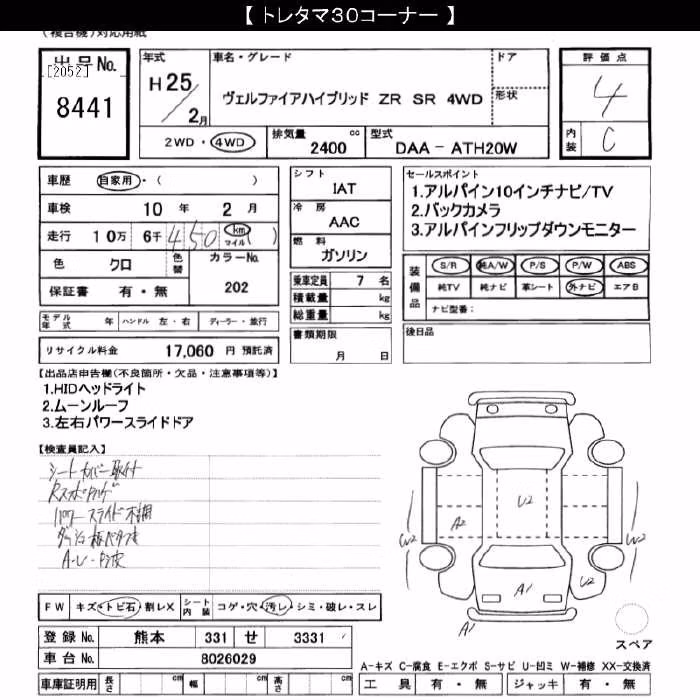 【 トレタマ30コーナー 】
(複合機)対応用紙
出品No.
[2052]
8441
年式
H 25 / 2月
車名・グレード
ヴェルファイアハイブリッド ZR SR 4WD
ドア
形状
2WD・4WD
排気量
2400 cc
型式
DAA - ATH20W
評価点
4
内装
C
車歴 自家用・( )
車検 10 年 2 月
走行 10万 6千 450 km マイル ( )
色 クロ 色替 カラーNo.
保証書 有・無 202
モデル年式 年 ハンドル 左・右 ディーラー・並行
リサイクル料金 17,060 円 預託済
シフト
IAT
冷房
AAC
燃料
ガソリン
乗車定員 7 名
積載量 kg
総重量 kg
書類期限
月 日
セールスポイント
1.アルパイン10インチナビ/TV
2.バックカメラ
3.アルパインフリップダウンモニター
装備品
S/R 純A/W P/S P/W ABS
純TV 純ナビ 革シート 外ナビ エアB
ナビ型番:
後日品
【出品店申告欄(不良箇所・欠品・注意事項等)】
1.HIDヘッドライト
2.ムーンルーフ
3.左右パワースライドドア
【検査員記入】
シートカバー取付
パワースライド不調
U2
A2
W2
W2
A1
U2
A1
スペア
FW キズ・トビ石・割レX シート内装 コゲ・穴・汚レ・シミ・破レ・スレ
登録No. 熊本 331 せ 3331
車台No. 8026029
車庫証明用 長さ cm 幅 cm 高さ cm
A-キズ C-腐食 E-エクボ S-サビ U-凹ミ W-補修 XX-交換済
工具 有・無 ジャッキ 有・無